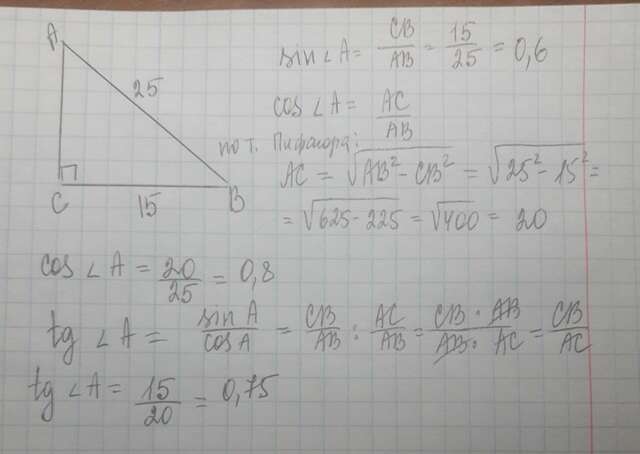 A
25
C
15
B
sin∠A = CB/AB = 15/25 = 0,6
cos∠A = AC/AB
по т. Пифагора:
AC = √(AB² - CB²) = √(25² - 15²) =
= √(625 - 225) = √400 = 20
cos∠A = 20/25 = 0,8
tg∠A = sin A/cos A = CB/AB : AC/AB = CB · AB/AB · AC = CB/AC
tg∠A = 15/20 = 0,75